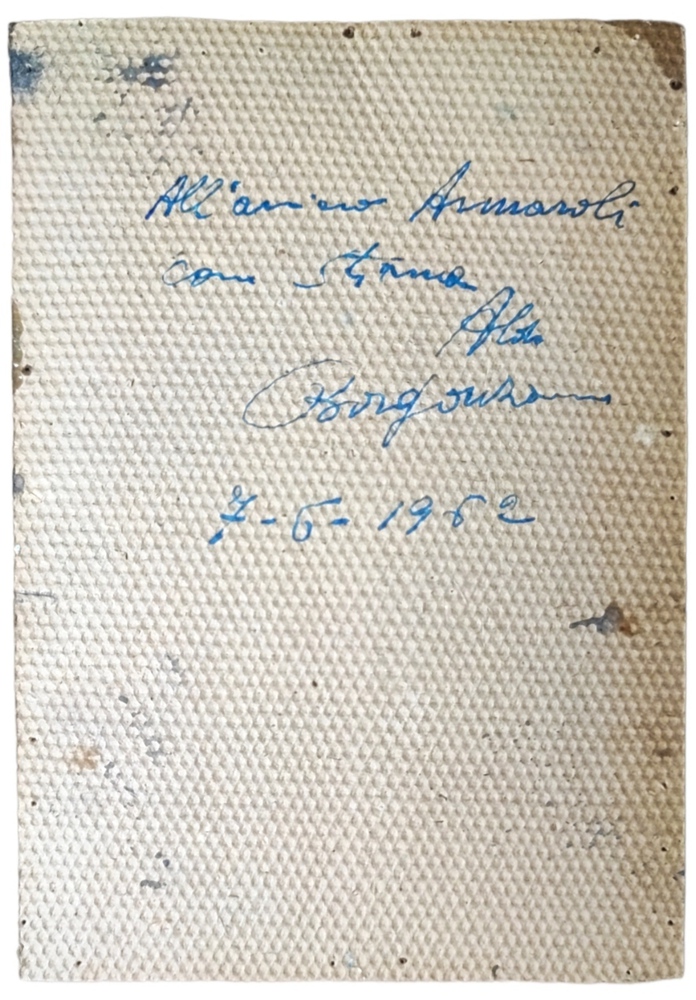 All'amico Armaroli
con stima
Aldo
Borgonzoni
7-6-1962